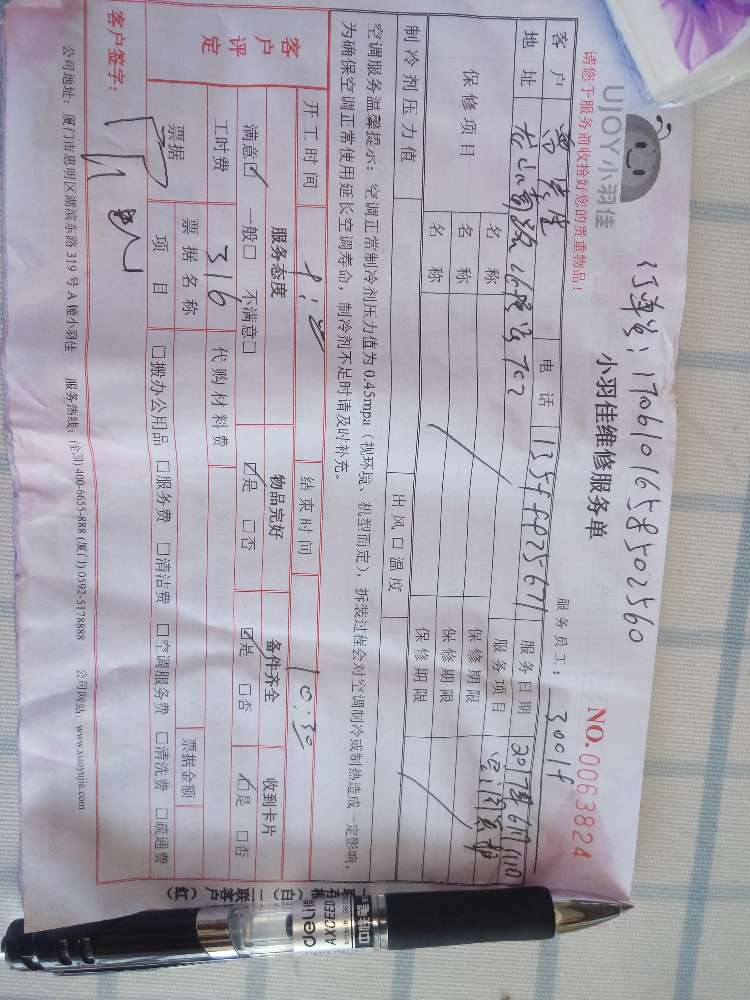 订单号：1706101658502560
UJOY小羽佳
小羽佳维修服务单
NO.0063824
请您于服务前收拾好您的贵重物品！
服务员工：
客户 先生 电话 服务日期
地址 702 服务项目
保修项目 名称 保修期限
名称 保修期限
名称 保修期限
制冷剂压力值 出风口温度
空调服务温馨提示：空调正常制冷剂压力值为0.45mpa（视环境、机型而定），拆装过程会对空调制冷或制热造成一定影响，
为确保空调正常使用延长空调寿命，制冷剂不足时请及时补充。
开工时间 结束时间 10:30
客户评定 服务态度 物品完好 备件齐全 收到卡片
满意☑ 一般□ 不满意□ ☑是 □否 ☑是 □否 ☑是 □否
工时费 316 代购材料费
票据 票据名称 票据金额
项目 □搬办公用品 □服务费 □清洁费 □空调服务费 □清洗费 □疏通费
客户签字：
公司地址：厦门市思明区湖滨东路319号A幢小羽佳 服务热线：(全国)400-6655-888 (厦门) 0592-5178888 公司网站：www.xiaoyujia.com
(白)
二联客户(红)
deli
AXCEED